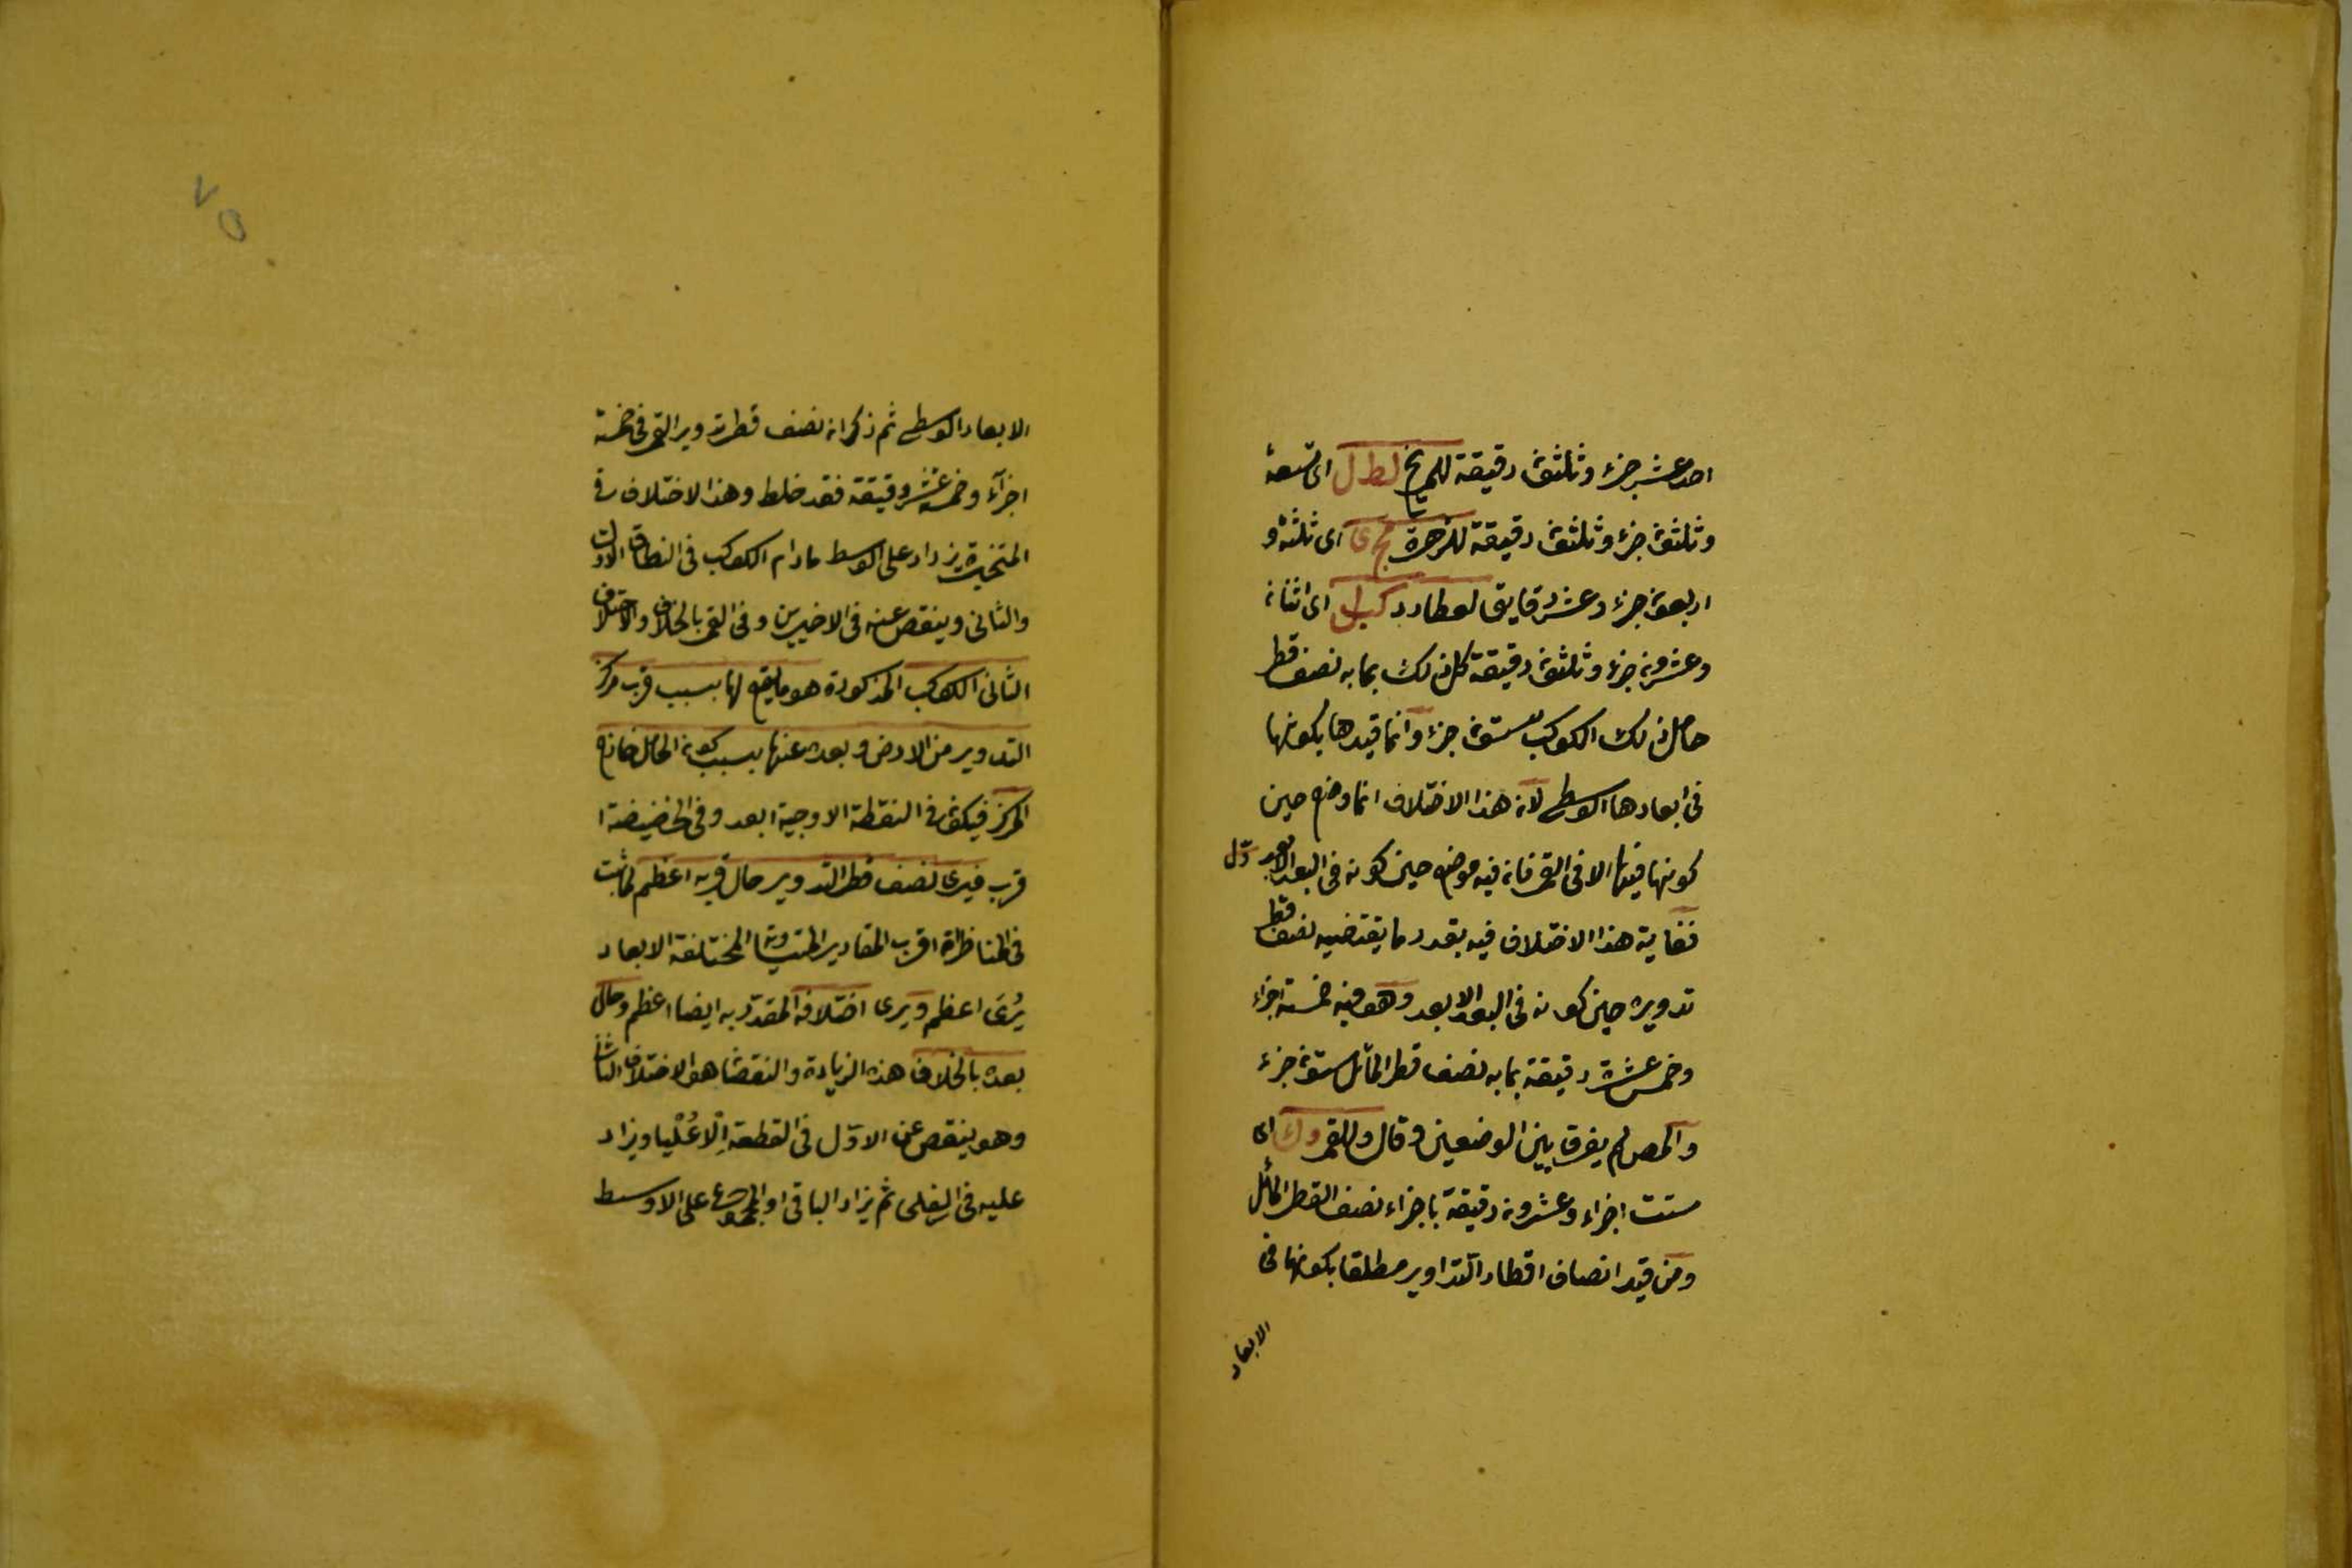 احد عشر جزء وثلثون دقيقة للمريخ لط ل اى تسعة
وثلثون جزء وثلثون دقيقة للزهرة مج ى اى ثلثة و
اربعون جزء وعشر دقايق لعطارد كب ل اى اثنان
وعشرون جزء وثلثون دقيقة كل ذلك بما به نصف قطر
حامل ذلك الكوكب ستون جزء وانما قيدها بكونها
فى ابعادها الوسطى لان هذا الاختلاف انما وضع حين
كونها فيها الا فى القمر فانه فيه موضوع حين كونه فى البعد الابعد
فغاية هذا الاختلاف فيه بقدر ما يقتضيه نصف قطر
تدويره حين كونه فى البعد الابعد وهو فيه خمسة اجزاء
وخمس عشرة دقيقة بما به نصف قطر المائل ستون جزء
والمص لم يفرق بين الوضعين وقال وللقمر و ك اى
ست اجزاء وعشرون دقيقة باجزاء نصف القطر المائل
ومن قيد انصاف اقطار التداوير مطلقا بكونها فى
الابعاد
٧٥
الابعاد الوسطى ثم ذكر ان نصف قطر تدوير القمر فى خمسة
اجزآء وخمس عشر دقيقة فقد خلط وهذا الاختلاف فى
المتحيرة يزداد على الوسط مادام الكوكب فى النطاق الاول
والثانى وينقص عنه فى الاخيرين وفى القمر بالخلاف والاختلاف
الثانى الكوكب المذكورة هو ما يقع لها بسبب قرب مركز
التدوير من الارض وبعده عنها بسبب كون الحامل خارج
المركز فيكون فى النقطة الاوجية ابعد وفى الحضيضة ا
قرب فيرى نصف قطر التدوير حال قربه اعظم لما ثبت
فى المناظر ان اقرب المقادير المتساوية المختلفة الابعاد
يُرَى اعظم ويرى اختلافه المقدّر به ايضا اعظم وحال
بعده بالخلاف هذه الزيادة والنقصان هو الاختلاف الثانى
وهو ينقص عن الاوّل فى القطعة العُلْيا ويزاد
عليه فى السفلى ثم يزاد الباقى او المجموع على الاوسط